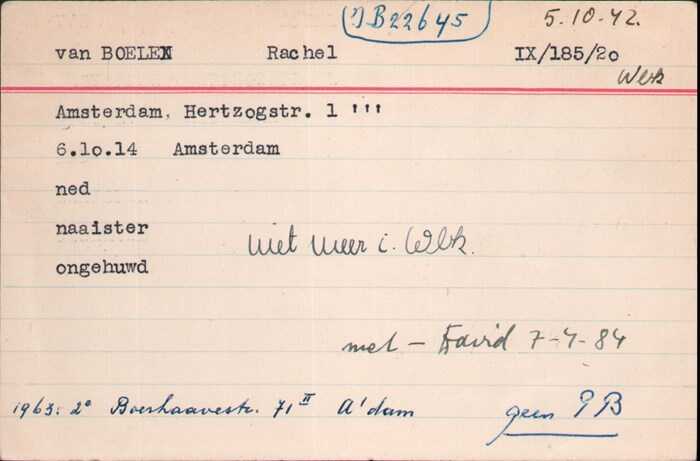 B22645 5.10.42.
van BOELEN Rachel IX/185/2o
Wek
Amsterdam, Hertzogstr. 1 '''
6.1o.14 Amsterdam
ned
naaister
niet meer i. Wbk.
ongehuwd
met - David 7-4-84
1963: 2e Boerhaavestr. 71 II A'dam geen PB